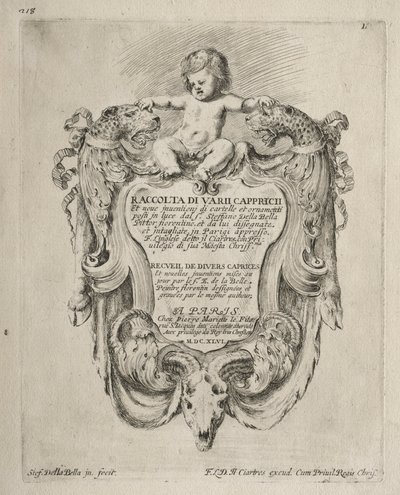 218
1.
RACCOLTA DI VARII CAPPRICII
Et noue inuentioni di cartelle et ornamenti
posti in luce dal s.r Steffano Della Bella
Pittor fiorentino, et da lui dissegnate,
et intagliate, in Parigi appresso,
F. L. D. detto il Ciartres, con Pri,
uilegio di sua Maestà Chriss.ma
RECUEIL DE DIVERS CAPRICES
Et nouelles inuentions mises au
jour par le s.r E. de la Belle,
Peintre florentin dessignées et
grauées par le mesme autheur;
A PARIS.
Chez Pierre Mariette le Filz
rue S. Iacques aux colonnes d'hercule
Auec priuilege du Roy tres Chrestien
M.DC.XLVI.
Stef. Della Bella in. fecit.
F.L.D. Ciartres excud. Cum Privil. Regis Chris.